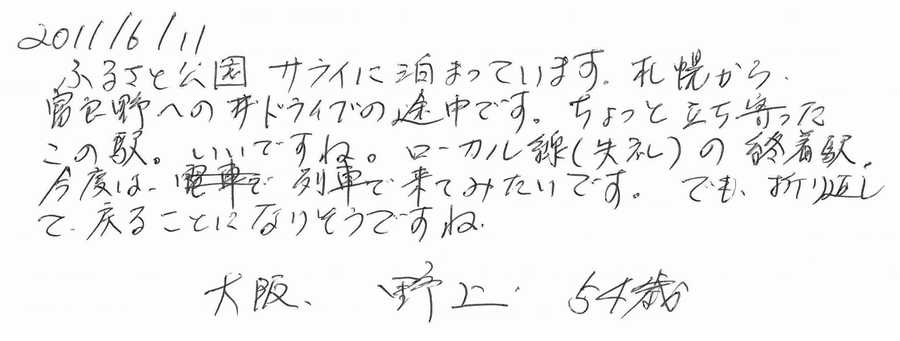 2011/6/11
ふるさと公園 サライに泊まっています。札幌から、
富良野へのドライブの途中です。ちょっと立ち寄った
この駅。いいですね。ローカル線(失礼)の終着駅。
今度は、電車で 列車で来てみたいです。でも、折り返し
て、戻ることになりそうですね。
大阪、 野上 54歳